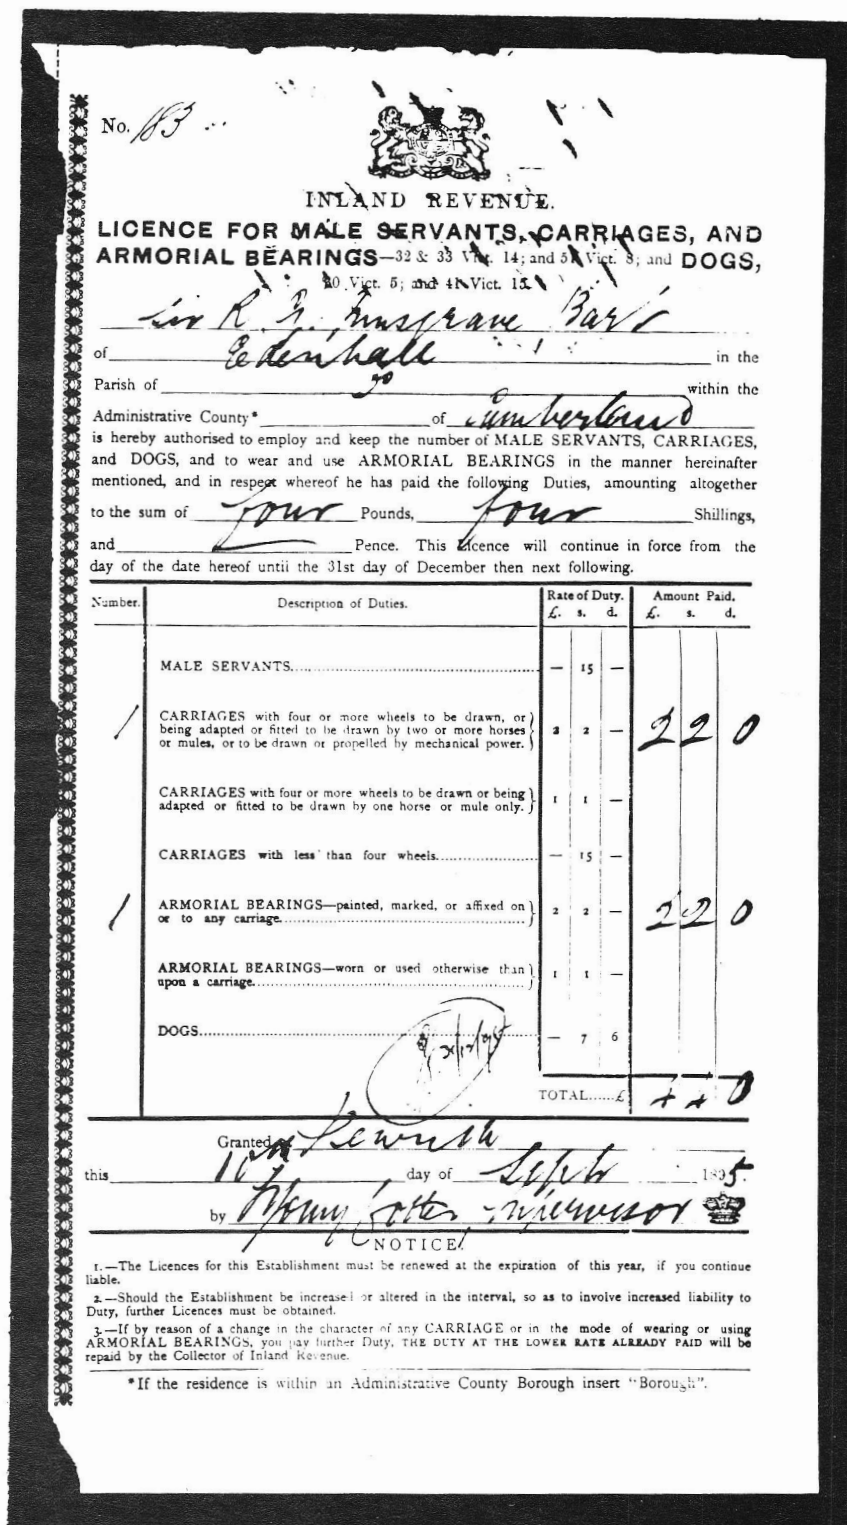 No. 183
INLAND REVENUE.
LICENCE FOR MALE SERVANTS, CARRIAGES, AND
ARMORIAL BEARINGS—32 & 33 Vict. 14; and 51 Vict. 8; and DOGS,
30 Vict. 5; and 41 Vict. 15.
Sir R. G. Musgrave Bart
of Edenhall in the
Parish of do within the
Administrative County* of Cumberland
is hereby authorised to employ and keep the number of MALE SERVANTS, CARRIAGES,
and DOGS, and to wear and use ARMORIAL BEARINGS in the manner hereinafter
mentioned, and in respect whereof he has paid the following Duties, amounting altogether
to the sum of four Pounds, four Shillings,
and — Pence. This Licence will continue in force from the
day of the date hereof until the 31st day of December then next following.
Number. Description of Duties. Rate of Duty. Amount Paid.
£. s. d. £. s. d.
MALE SERVANTS — 15 —
1 CARRIAGES with four or more wheels to be drawn, or
being adapted or fitted to be drawn by two or more horses 2 2 — 2 2 0
or mules, or to be drawn or propelled by mechanical power.
CARRIAGES with four or more wheels to be drawn or being
adapted or fitted to be drawn by one horse or mule only. 1 1 —
CARRIAGES with less than four wheels — 15 —
1 ARMORIAL BEARINGS—painted, marked, or affixed on 2 2 — 2 2 0
or to any carriage
ARMORIAL BEARINGS—worn or used otherwise than 1 1 —
upon a carriage
DOGS — 7 6
TOTAL......£ 4 4 0
Granted at Penrith
this 10th day of Septr 1895.
by Henry Cotter Supervisor
NOTICE.
1.—The Licences for this Establishment must be renewed at the expiration of this year, if you continue
liable.
2.—Should the Establishment be increased or altered in the interval, so as to involve increased liability to
Duty, further Licences must be obtained.
3.—If by reason of a change in the character of any CARRIAGE or in the mode of wearing or using
ARMORIAL BEARINGS, you pay further Duty, THE DUTY AT THE LOWER RATE ALREADY PAID will be
repaid by the Collector of Inland Revenue.
*If the residence is within an Administrative County Borough insert "Borough".